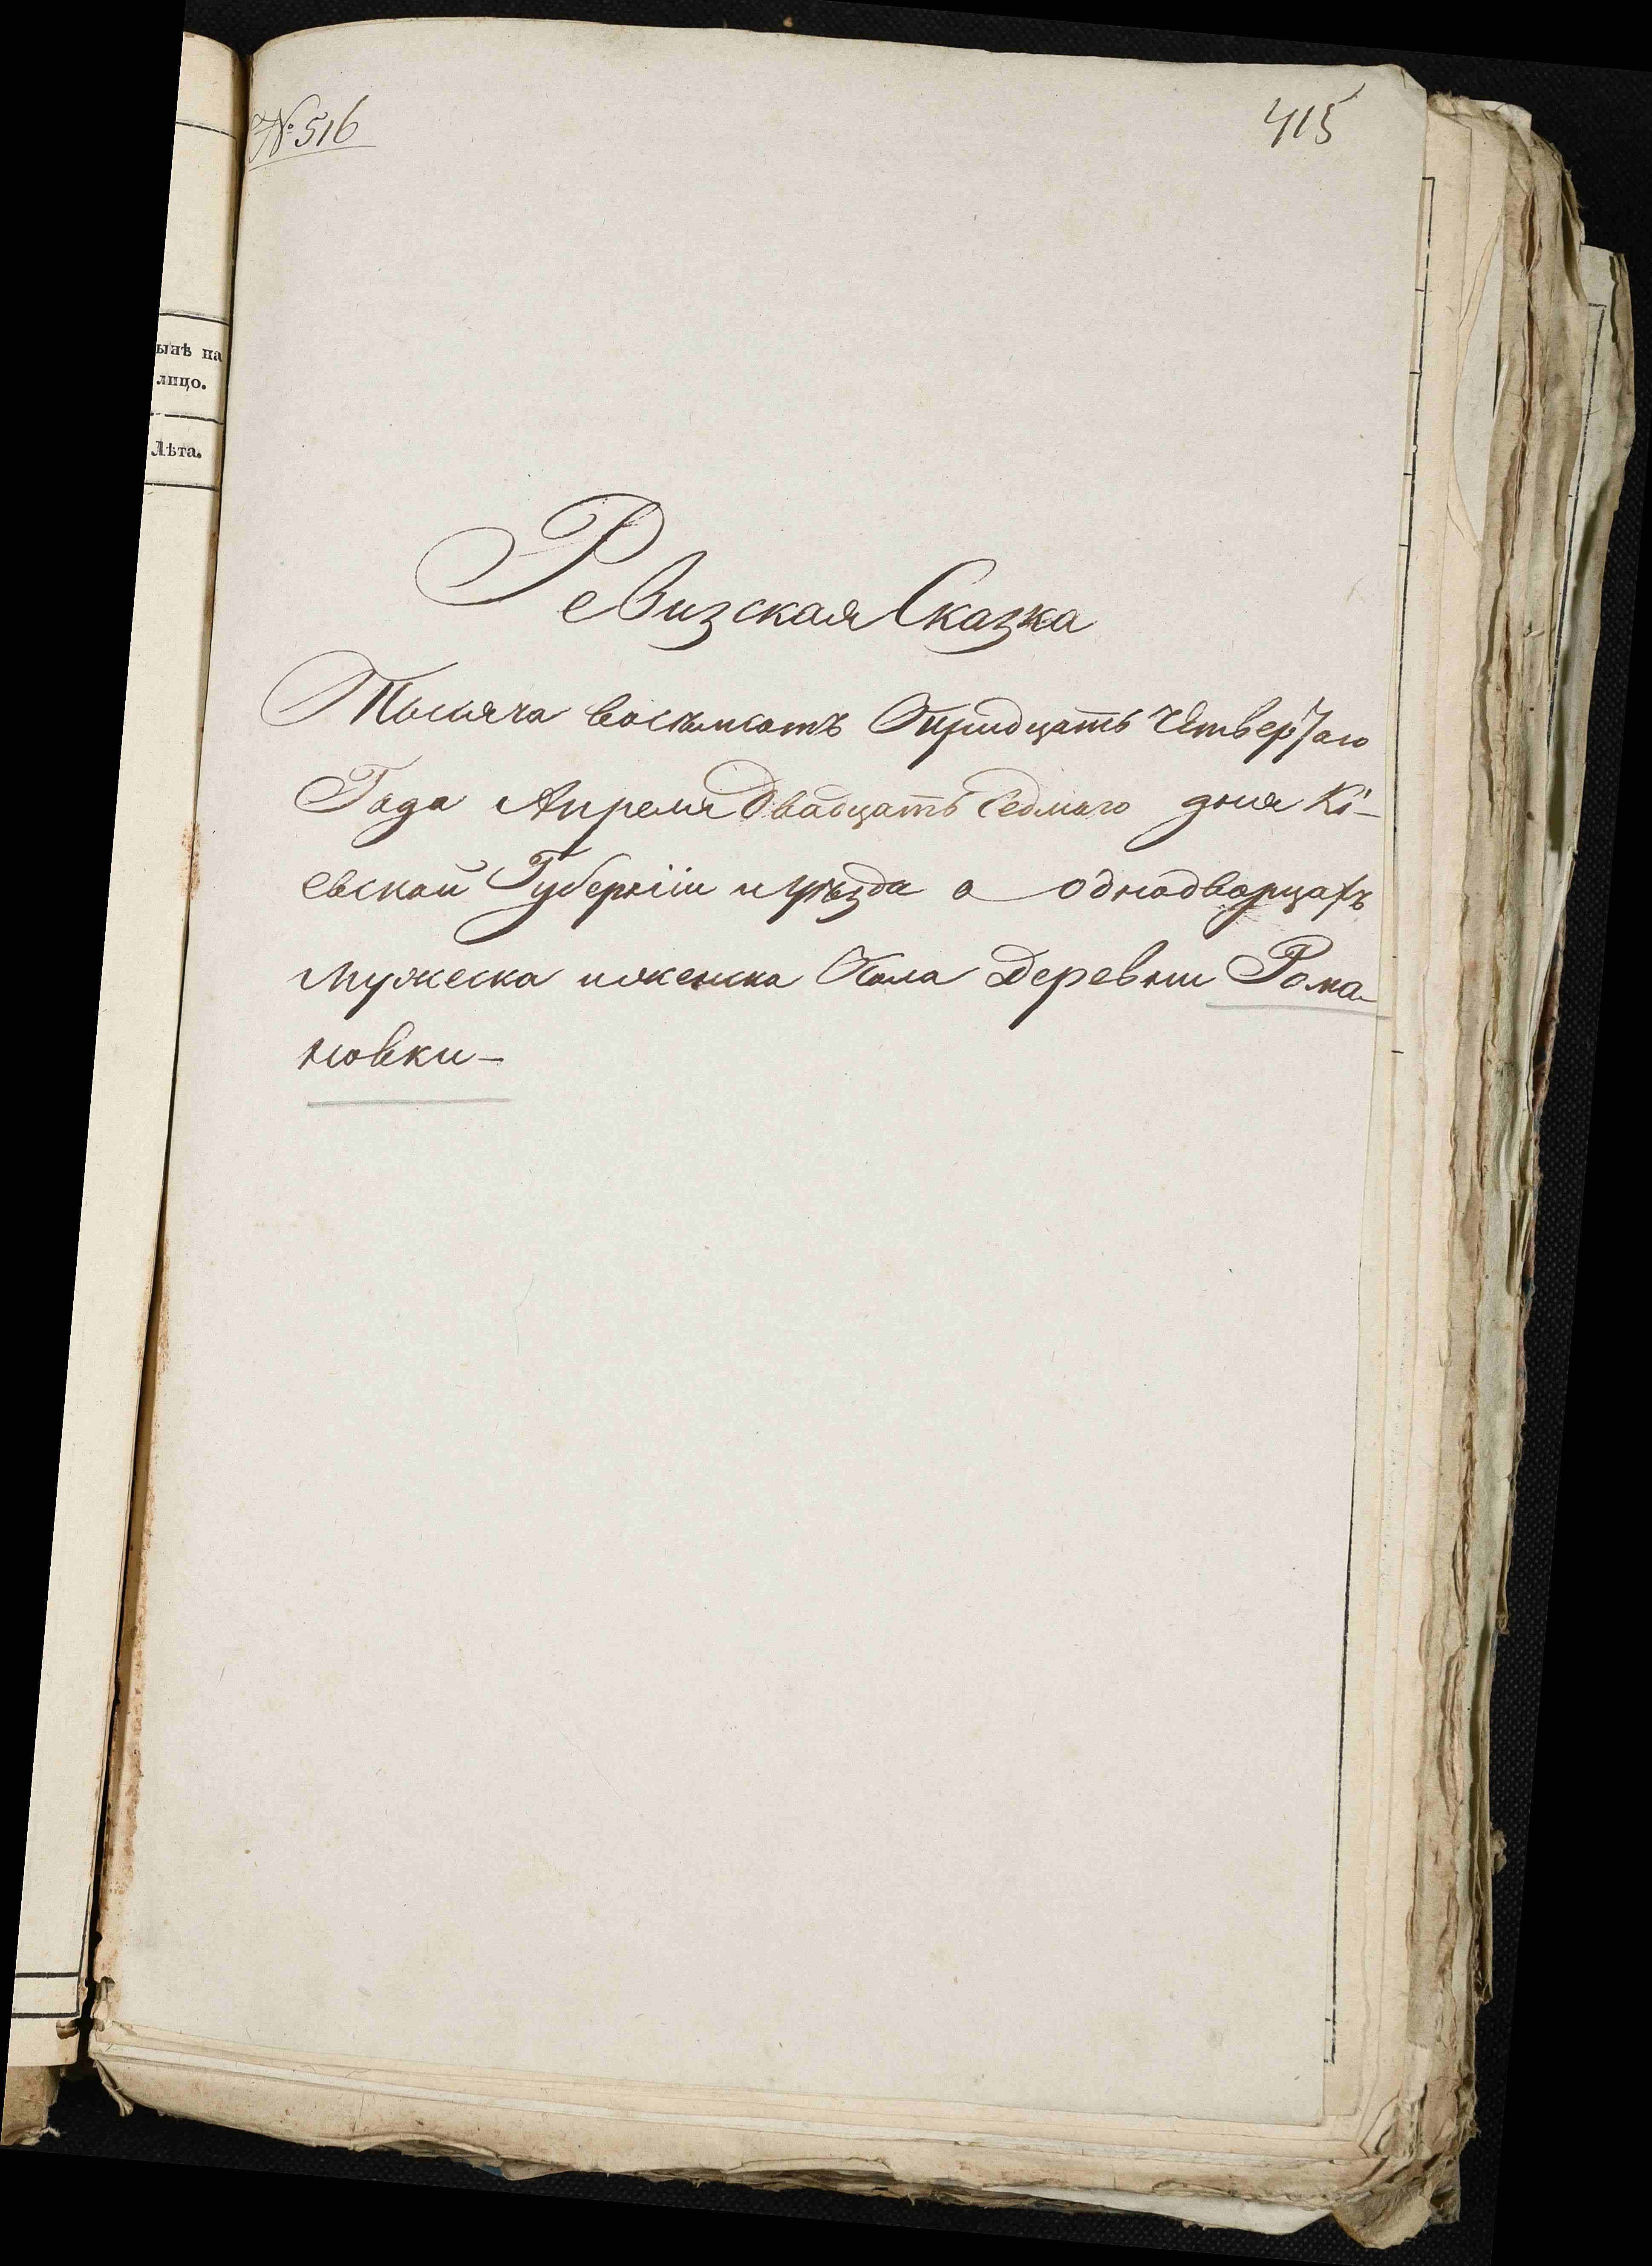 ынѣ на
лицо.
Лѣта.
№ 516
415
Ревизская Сказка
Тысяча восемьсотъ тридцать Четвертаго
Года Апреля Двадцать Седмаго дня Кі-
евской Губерніи и уѣзда о однодворцахъ
мужеска и женска Пола Деревни Рома-
новки-